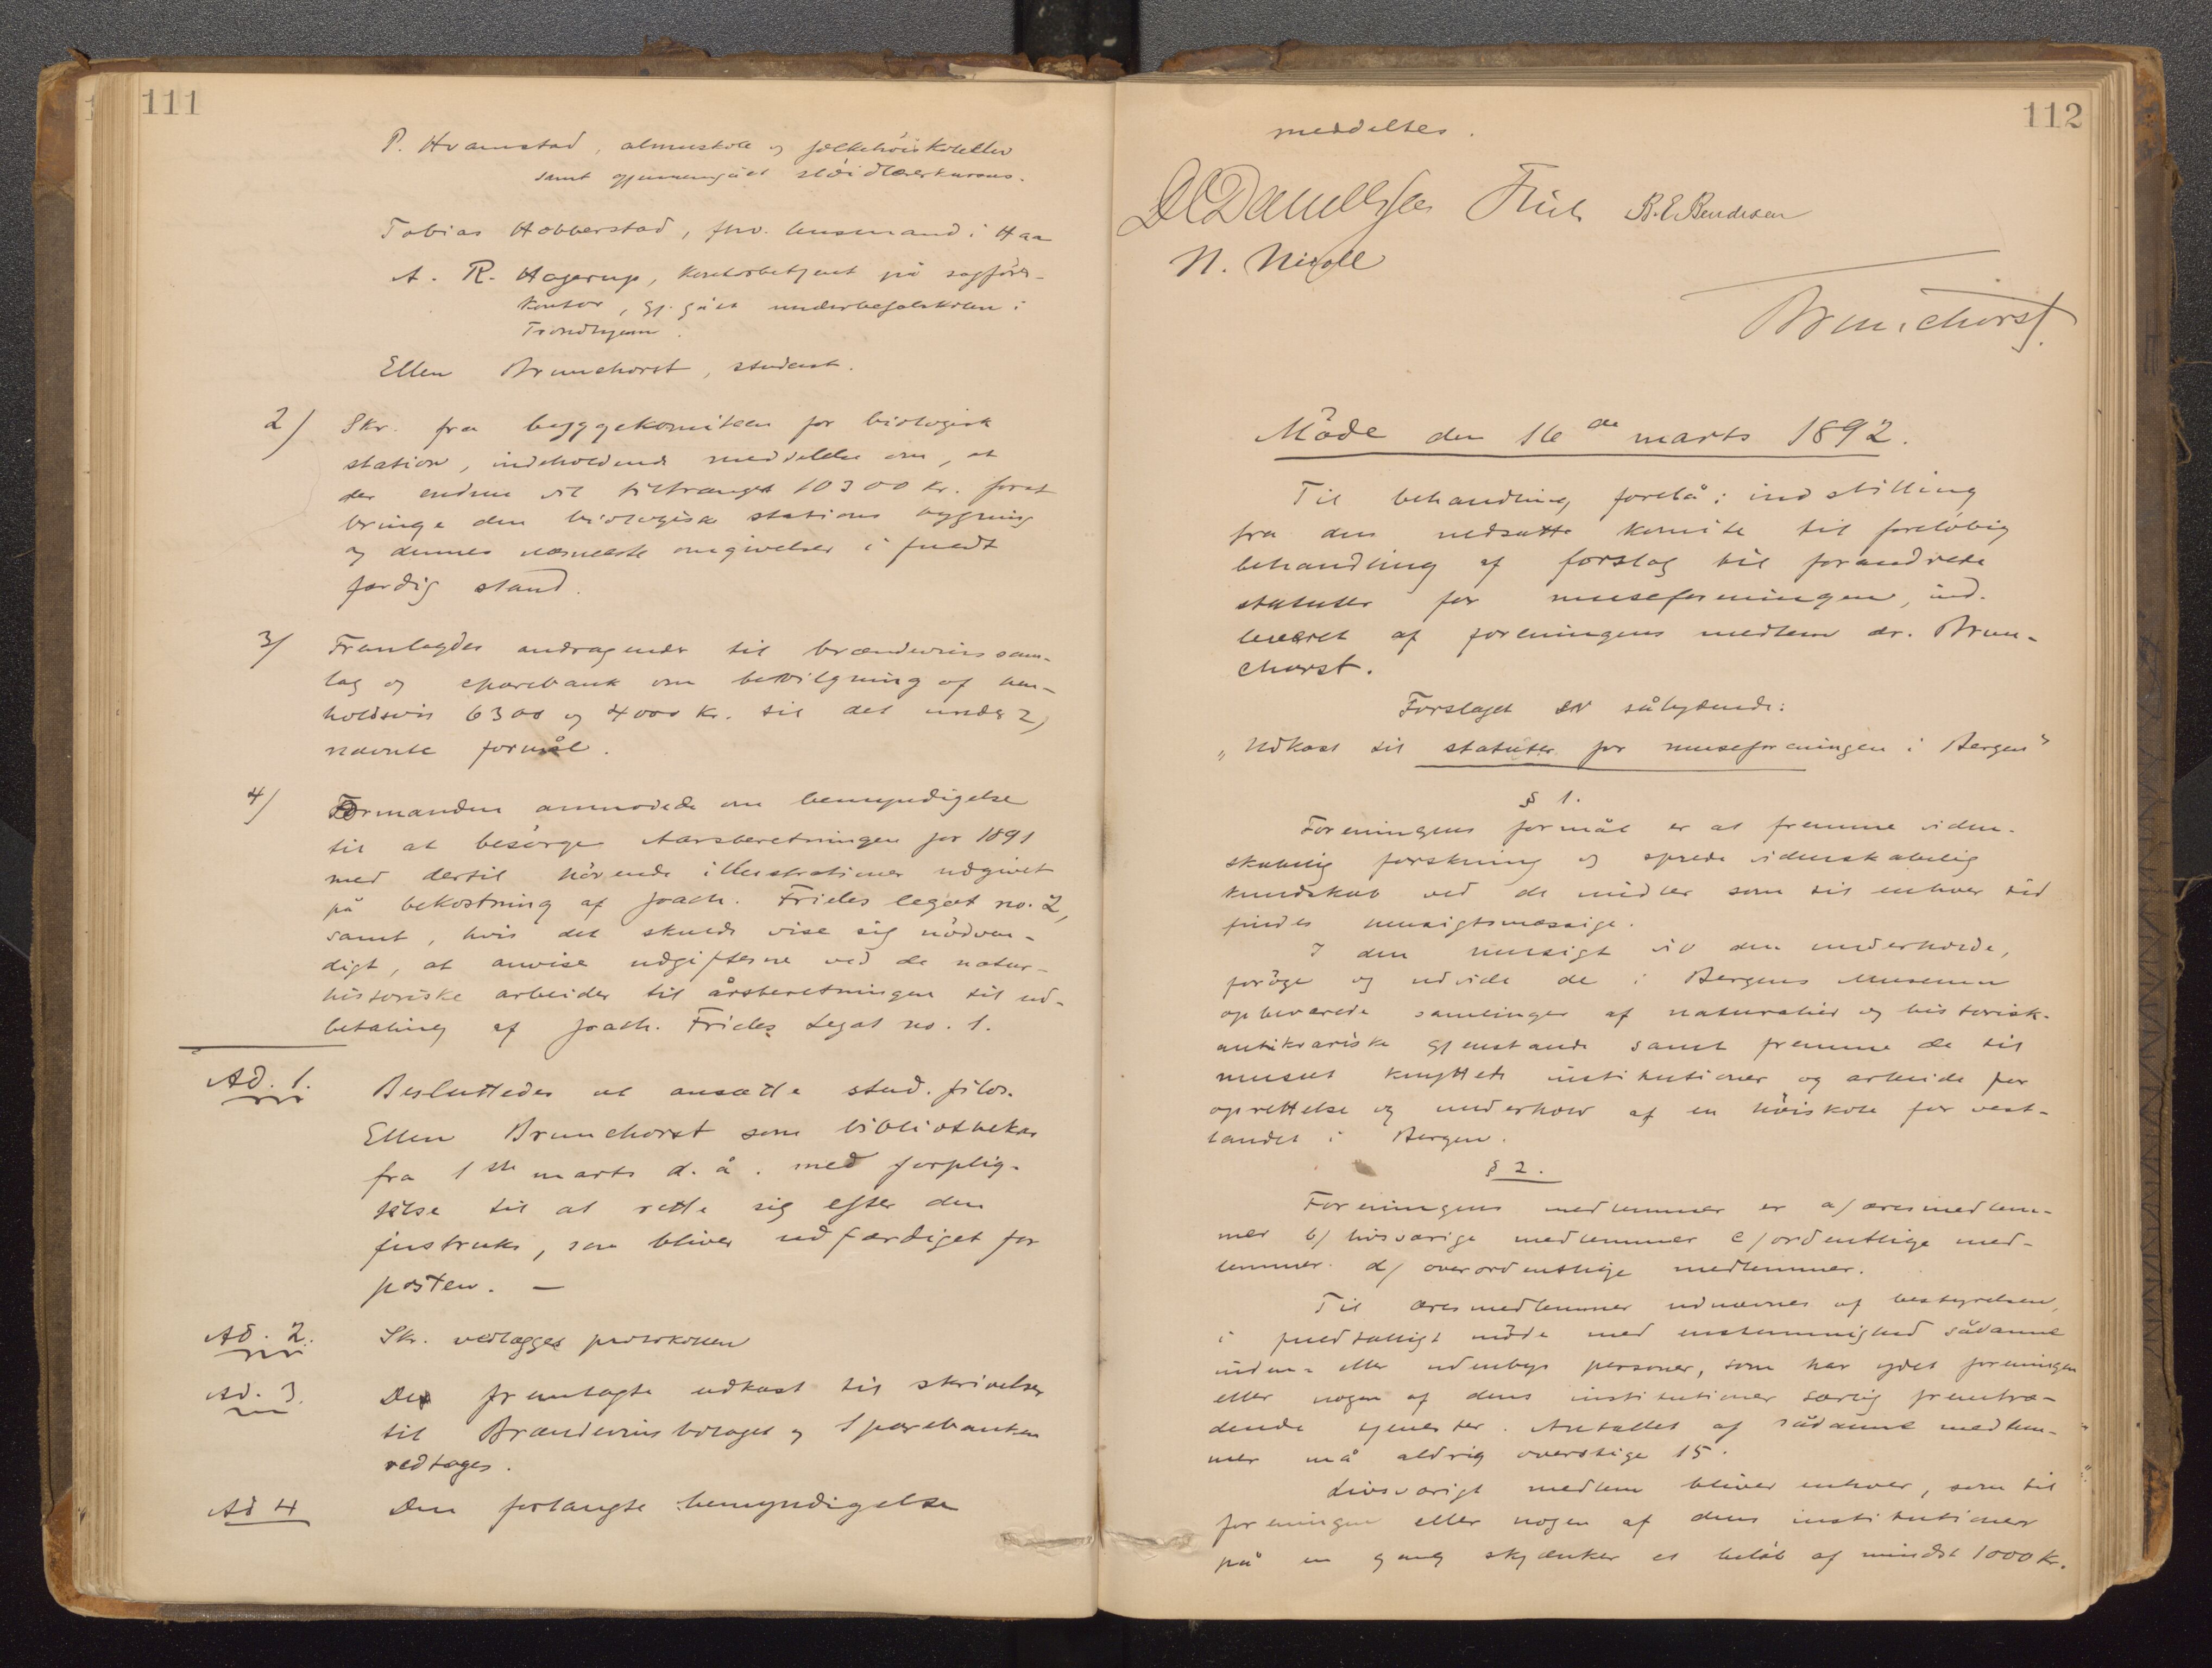 111
P. Hvamstad, almuskole og folkehöiskoleelev
samt gjennemgået slöidlærerkursus.
Tobias Hobberstad, fhv. husmand i Haa
A. R. Hagerup, kontorbetjent på sagförer-
kontor, gj.gået underbefalskolen i
Trondhjem.
Ellen Brunchorst, student.
2) Skr. fra byggekomiteen for biologisk
station, indeholdende meddelelse om, at
der endnu vil tiltrænges 10300 kr. forat
bringe den biologiske stations bygning
og dennes nærmeste omgivelser i fuldt
færdig stand.
3) Fremlagdes andragender til brændevinssam-
lag og sparebank om bevilgning af hen-
holdsvis 6300 og 4000 kr. til det under 2)
nævnte formål.
4) Formanden anmodede om bemyndigelse
til at besörge Aarsberetningen for 1891
med dertil hörende illustrationer udgivet
på bekostning af Joach. Frieles legat no. 2,
samt, hvis det skulde vise sig nödven-
digt, at anvise udgifterne ved de natur-
historiske arbeider til årsberetningen til ud-
betaling af Joach. Frieles Legat no. 1.
Ad. 1. Besluttedes at ansætte stud. filos.
Ellen Brunchorst som bibliothekar
fra 1ste marts d. å. med forplig-
telse til at rette sig efter den
instruks, som bliver udfærdiget for
posten. —
Ad. 2. Skr. vedlægges protokollen
Ad. 3. De fremlagte udkast til skrivelser
til Brændevinsbolaget og Sparebanken
vedtoges.
Ad 4 Den forlangte bemyndigelse
112
meddeltes.
DC Danielssen Friele B. E. Bendixen
N. Nicoll
Brunchorst.
Möde den 16de marts 1892.
Til behandling forelå: indstilling
fra den nedsatte komite til foreløbig
behandling af forslag til forandrede
statuter for museforeningen, ind-
leveret af foreningens medlem dr. Brun-
chorst.
Forslaget er sålydende:
„Udkast til statuter for museforeningen i Bergen"
§ 1.
Foreningens formål er at fremme viden-
skabelig forskning og sprede videnskabelig
kundskab ved de midler som til enhver tid
findes hensigtsmæssige.
I den hensigt vil den underholde,
forøge og udvide de i Bergens Museum
opbevarede samlinger af naturalier og historisk-
antikvariske gjenstande samt fremme de til
museet knyttede institutioner og arbeide for
oprettelse og underhold af en höiskole for vest-
landet i Bergen.
§ 2.
Foreningens medlemmer er a) æresmedlem-
mer b) livsvarige medlemmer c) ordentlige med-
lemmer d) overordentlige medlemmer.
Til æresmedlemmer udnævnes af bestyrelsen,
i fuldtalligt möde med enstemmighed sådanne
inden- eller udenbys personer, som har ydet foreningen
eller nogen af dens institutioner særlig fremtræ-
dende tjenester. Antallet af sådanne medlem-
mer må aldrig overstige 15.
Livsvarigt medlem bliver enhver, som til
foreningen eller nogen af dens institutioner
på en gang skjænker et beløb af mindst 1000 kr.